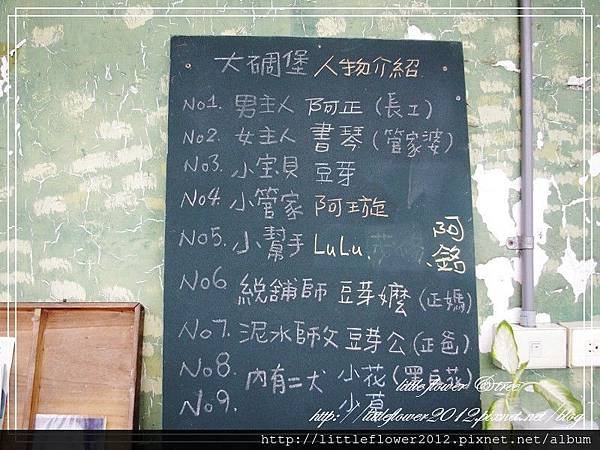 大碉堡 人物介紹
No1. 男主人 阿正 (長工)
No2. 女主人 書琴 (管家婆)
No3. 小宝貝 豆芽
No4. 小管家 阿璇
No5. 小幫手 LuLu. 阿銘
No6 総舖師 豆芽嬤 (正媽)
No7. 泥水師父 豆芽公 (正爸)
No8. 內有二犬 小花
No9.
littleflower @tree
http://littleflower2012.pixnet.net/blog
http://littleflower2012.pixnet.net/album